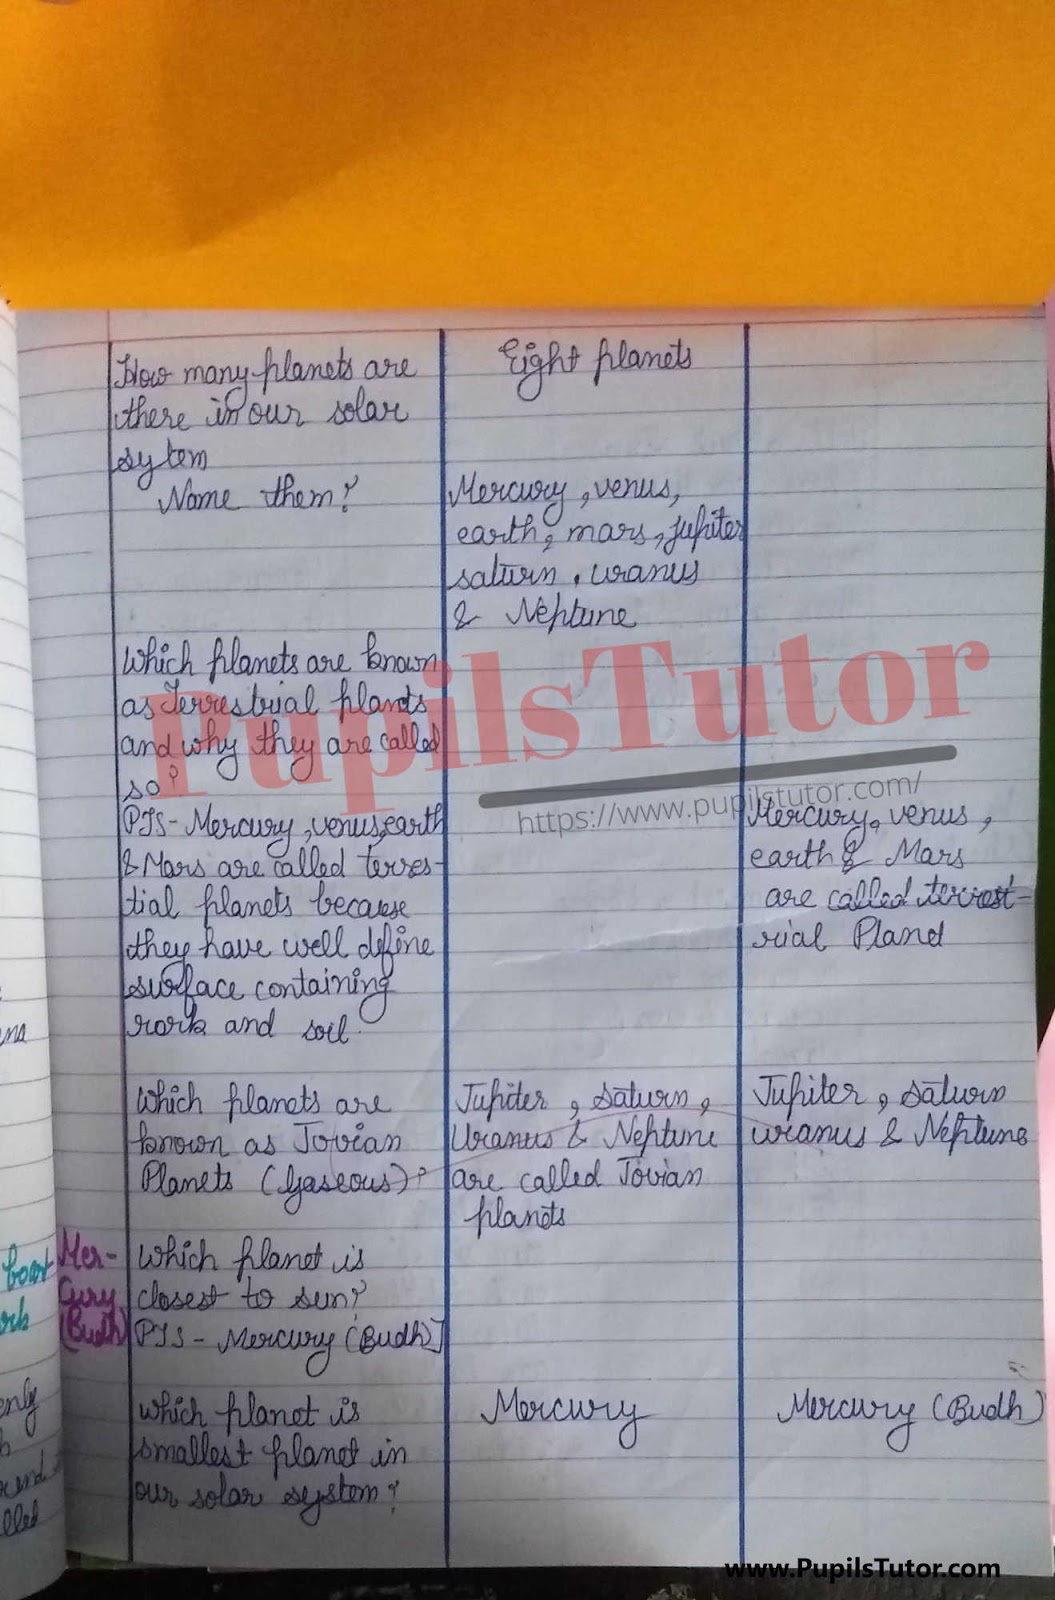 How many planets are
there in our solar
sytem
Name them?
Eight planets
Mercury, venus,
earth, mars, Jupiter
saturn, uranus
& Neptune
Which planets are known
as Terrestrial planets
and why they are called
so?
PTS- Mercury, venus, earth
& Mars are called terres-
tial planets because
they have well define
surface containing
rork and soil.
Mercury, venus,
earth & Mars
are called terrest-
rial Pland
Which planets are
known as Jovian
Planets (Gaseous)?
Jupiter, saturn,
Uranus & Neptune
are called Jovian
planets
Jupiter, saturn
uranus & Neptune
Mer-
Cury
(Budh)
Which planet is
closest to sun?
PTS- Mercury (Budh)]
Which planet is
smallest planet in
our solar system?
Mercury
Mercury (Budh)
boart
PupilsTutor
https://www.pupilstutor.com/
www.PupilsTutor.com